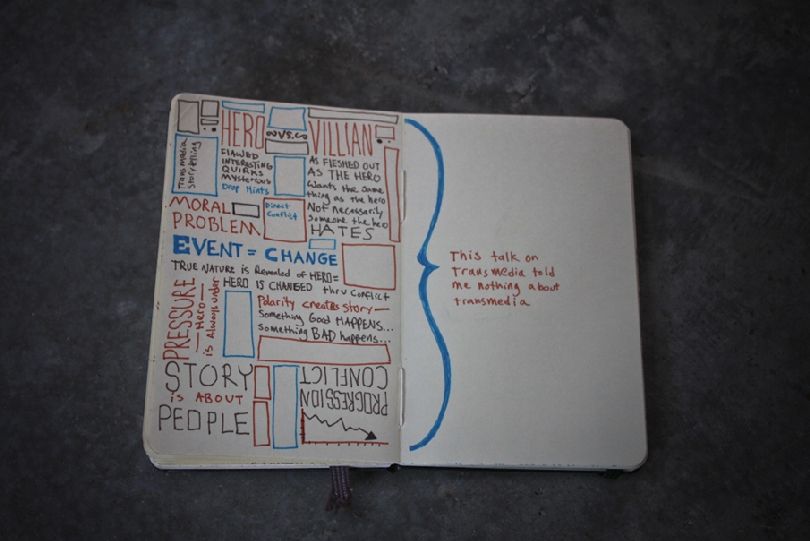 Transmedia
storytelling
HERO
VS.
VILLIAN
FLAWED
INTERESTING
QUIRKS
MYSTERIOUS
Drop Hints
AS FLESHED OUT
AS THE HERO
Wants the same
thing as the hero
NOT necessarily
someone the hero
HATES
MORAL
PROBLEM
Direct
Conflict
EVENT = CHANGE
TRUE NATURE is Revealed of HERO=
HERO IS CHANGED thru Conflict
PRESSURE
Hero
is Always under
Polarity creates story
Something Good HAPPENS...
something BAD happens...
STORY
is ABOUT
PEOPLE
PROGRESSION
CONFLICT
This talk on
Transmedia told
me nothing about
transmedia